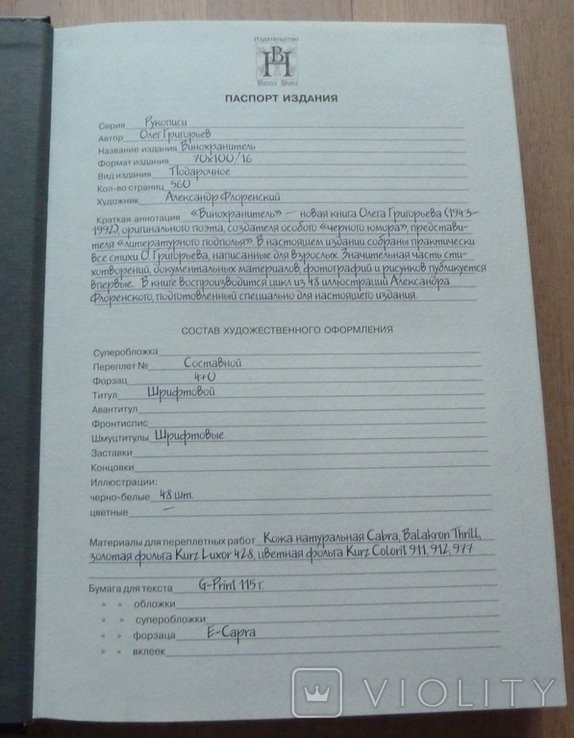 Издательство
ВН
Вита Нова
ПАСПОРТ ИЗДАНИЯ
Серия Рукописи
Автор Олег Григорьев
Название издания Винохранитель
Формат издания 70х100/16
Вид издания Подарочное
Кол-во страниц 560
Художник Александр Флоренский
Краткая аннотация «Винохранитель» — новая книга Олега Григорьева (1943-
1992), оригинального поэта, создателя особого «черного юмора», представи-
теля «литературного подполья». В настоящем издании собраны практически
все стихи О. Григорьева, написанные для взрослых. Значительная часть сти-
хотворений, документальных материалов, фотографий и рисунков публикуется
впервые. В книге воспроизводится цикл из 48 иллюстраций Александра
Флоренского, подготовленный специально для настоящего издания.
СОСТАВ ХУДОЖЕСТВЕННОГО ОФОРМЛЕНИЯ
Суперобложка
Переплет № Составной
Форзац 4+0
Титул Шрифтовой
Авантитул
Фронтиспис
Шмуцтитулы Шрифтовые
Заставки
Концовки
Иллюстрации:
черно-белые 48 шт.
цветные —
Материалы для переплетных работ Кожа натуральная Cabra, Balakron Thrill,
золотая фольга Kurz Luxor 428, цветная фольга Kurz Colorit 911, 912, 977
Бумага для текста G-Print 115 г.
» » обложки
» » суперобложки
» » форзаца E-Capra
» » вклеек
VIOLITY